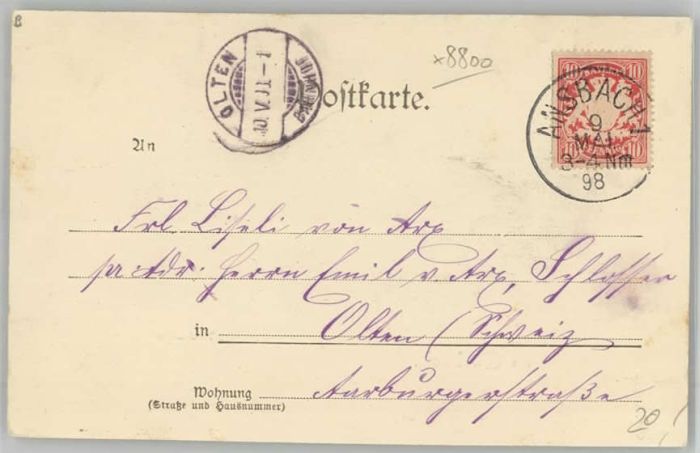 B
OLTEN
10.V.
x8800
10 10
ANSBACH 1
9
MAI
3-4 Nm
98
10 10
Postkarte.
An
Frl. Liseli von Arx
pr. Adr. Herrn Emil v. Arx, Schlosser
in Olten (Schweiz
Wohnung Aarburgerstraße
(Straße und Hausnummer)
20